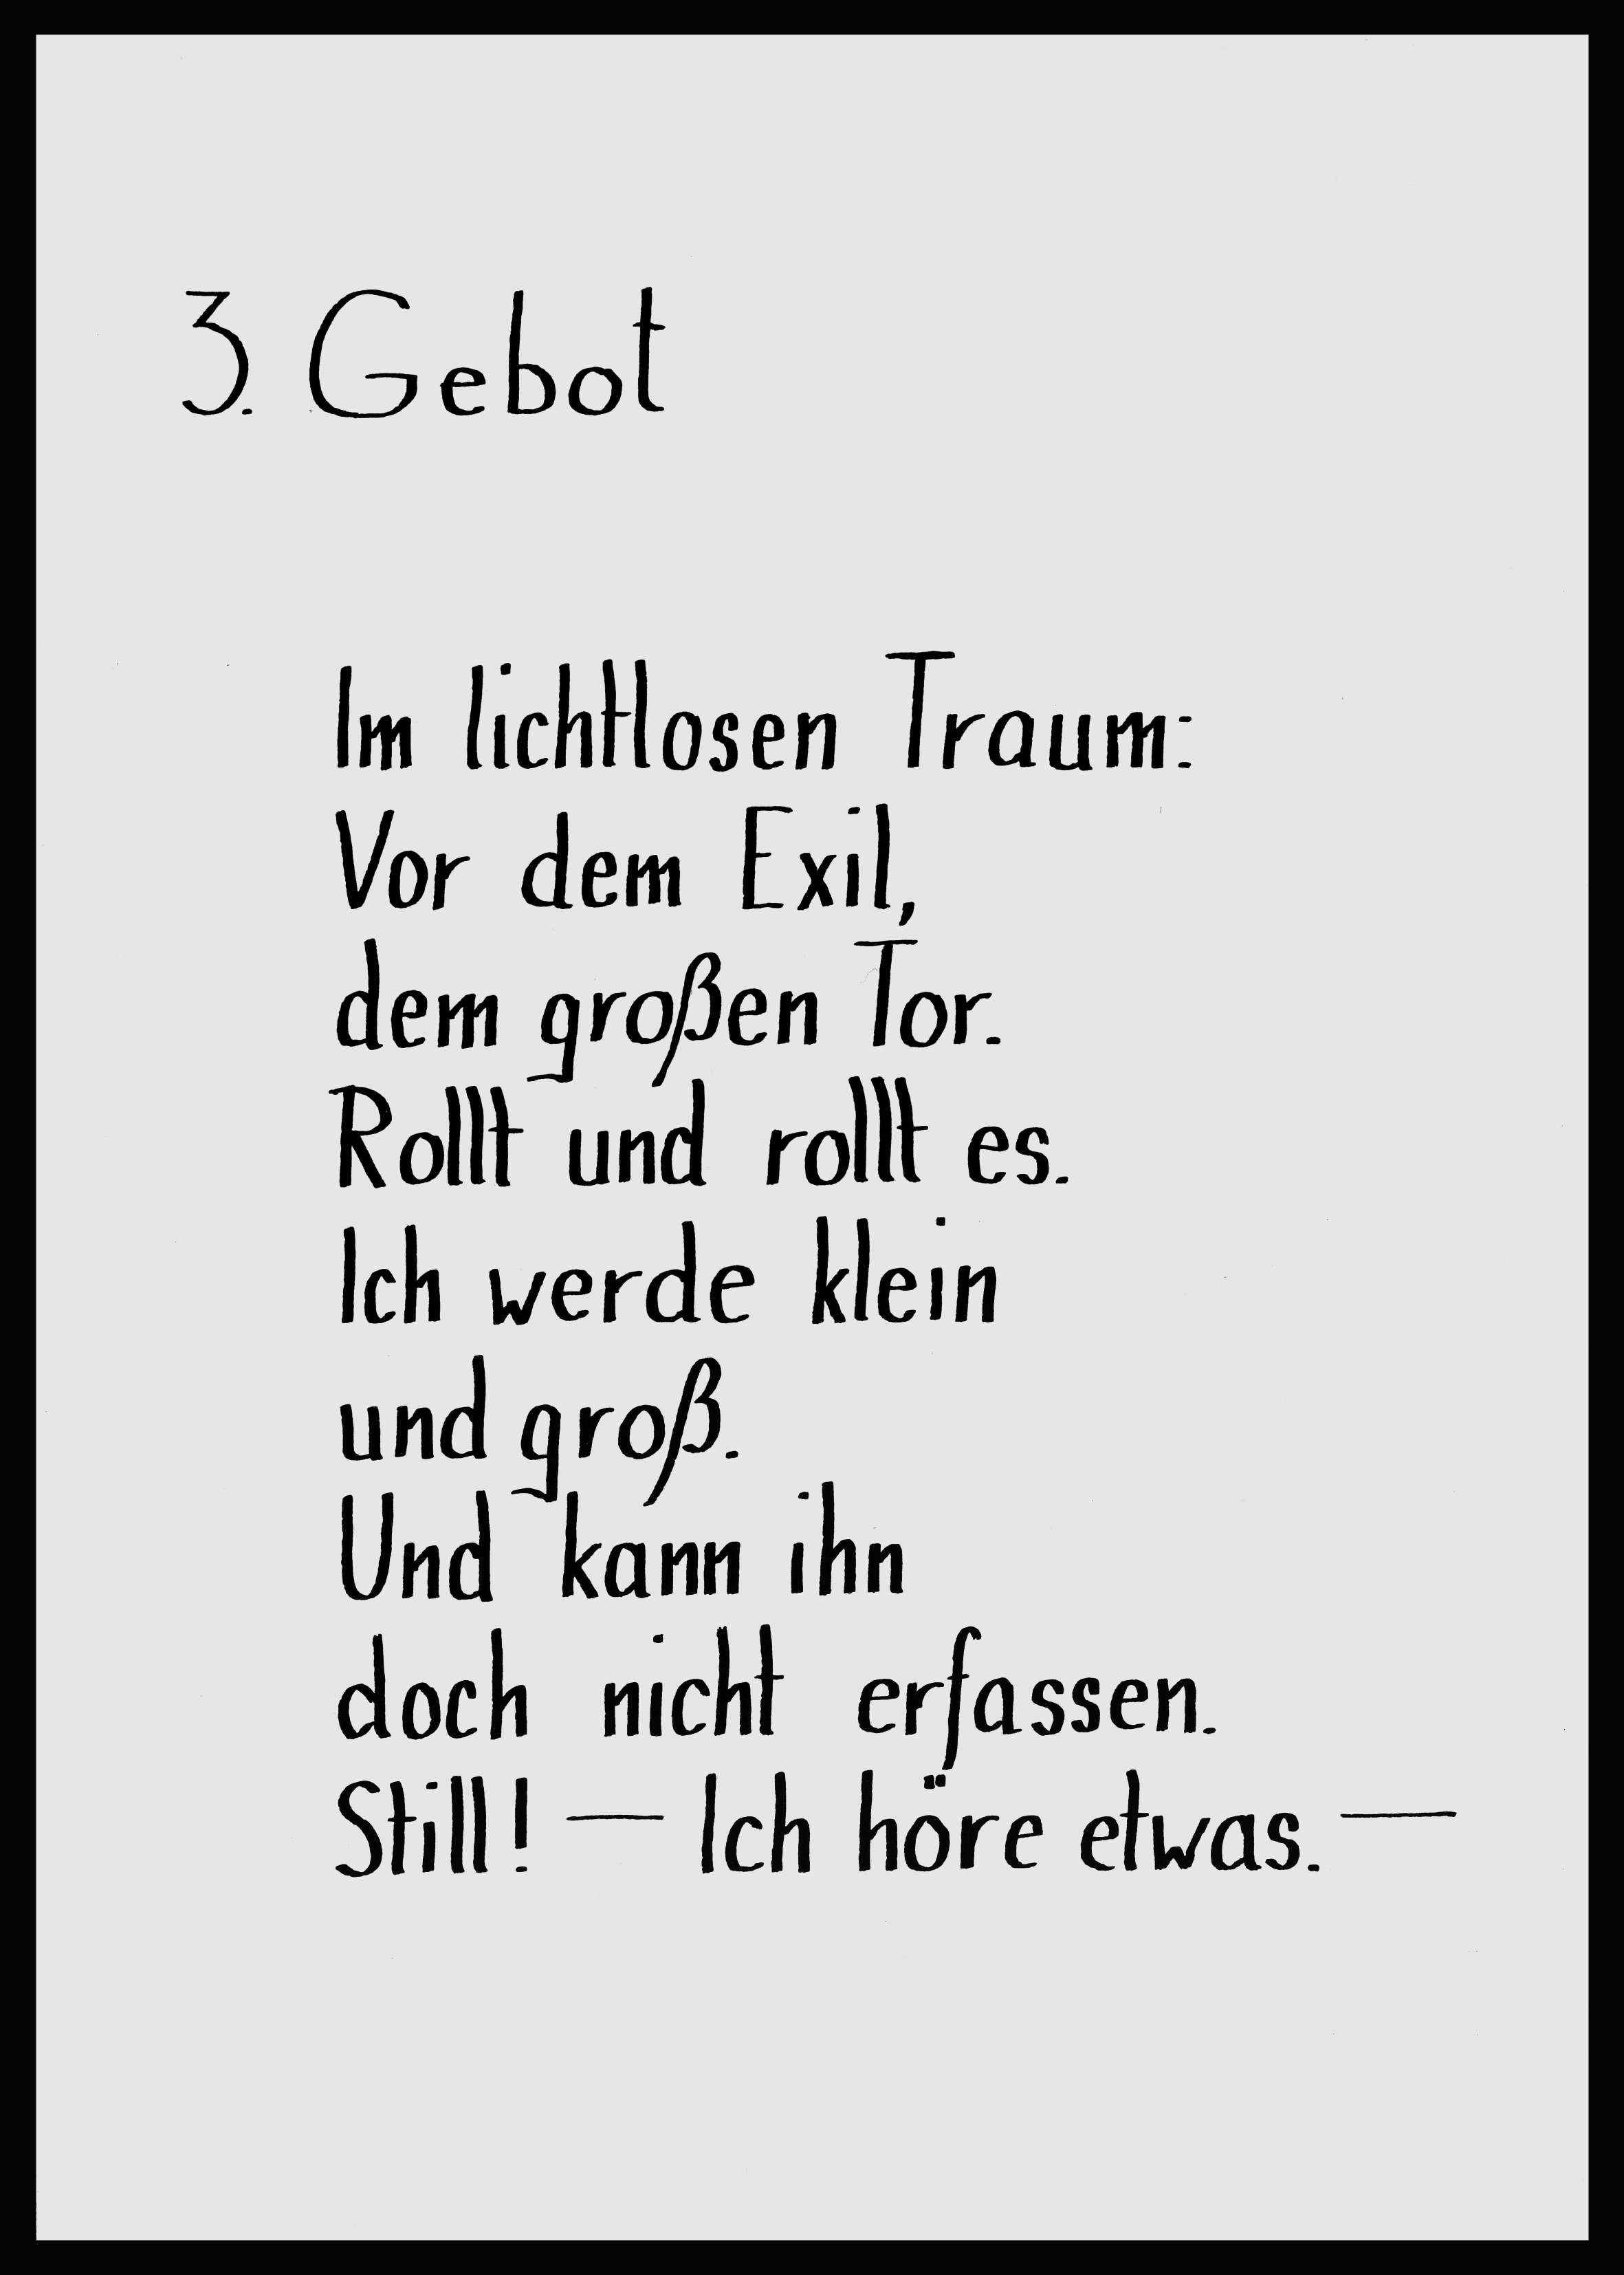 3. Gebot
Im lichtlosen Traum:
Vor dem Exil,
dem großen Tor.
Rollt und rollt es.
Ich werde klein
und groß.
Und kann ihn
doch nicht erfassen.
Still! — Ich höre etwas. —